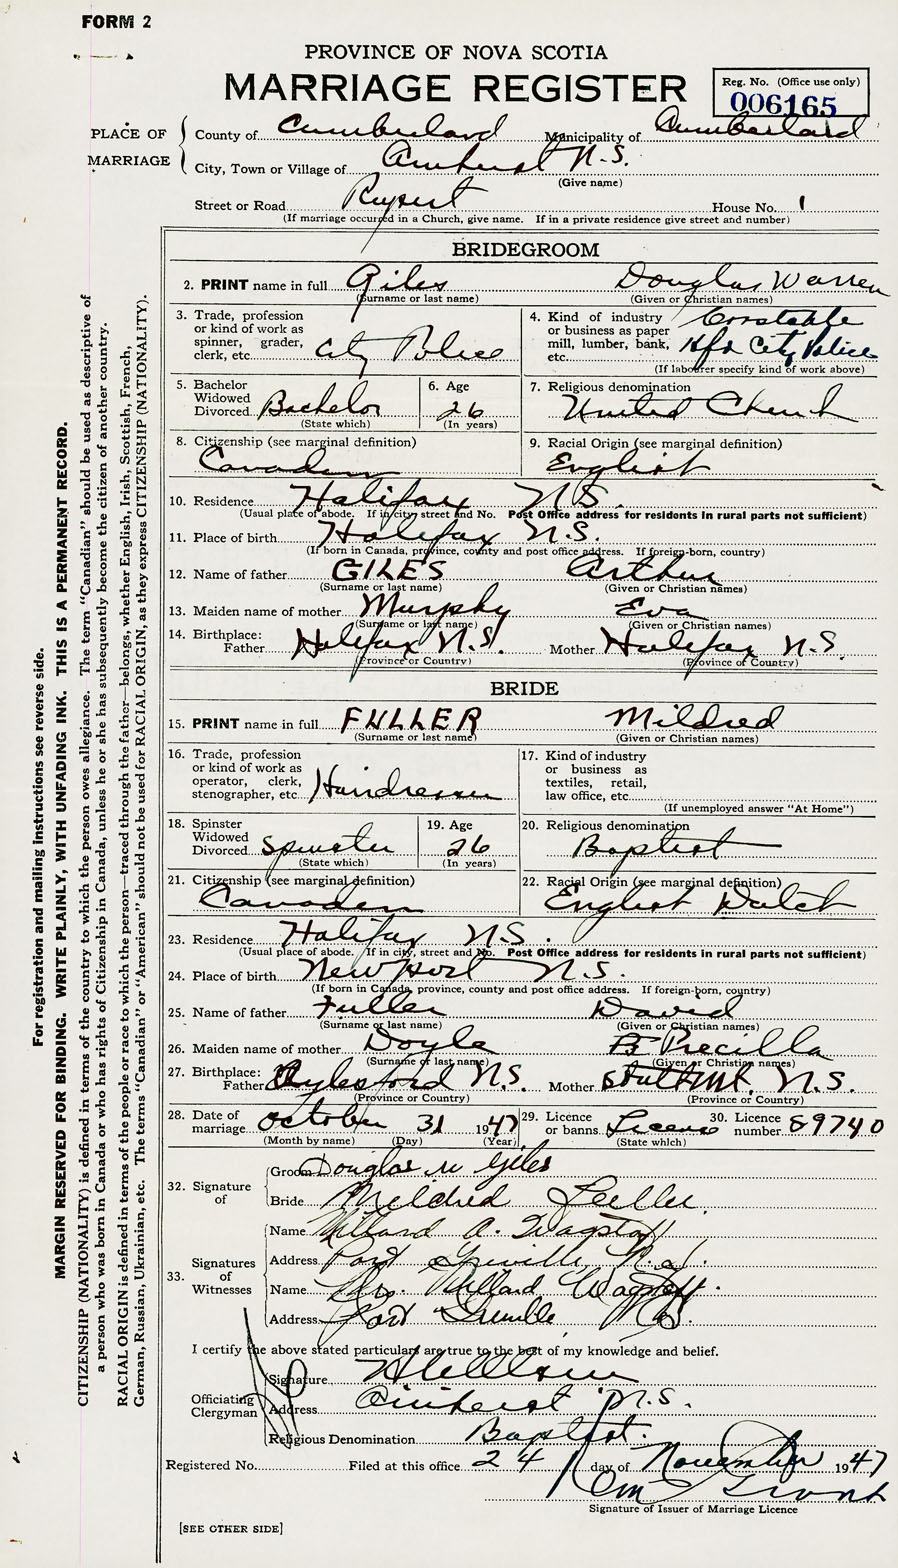 FORM 2
PROVINCE OF NOVA SCOTIA
MARRIAGE REGISTER
Reg. No. (Office use only)
006165
PLACE OF MARRIAGE
County of Cumberland Municipality of Cumberland
City, Town or Village of Amherst N.S.
(Give name)
Street or Road Rupert House No. 1
(If marriage occurred in a Church, give name. If in a private residence give street and number)
BRIDEGROOM
2. PRINT name in full Giles Douglas Warren
(Surname or last name) (Given or Christian names)
3. Trade, profession or kind of work as spinner, grader, clerk, etc. City Police
4. Kind of industry or business as paper mill, lumber, bank, etc. Constable Hfx City Police
(If labourer specify kind of work above)
5. Bachelor Widowed Divorced Bachelor
(State which)
6. Age 26
(In years)
7. Religious denomination United Church
8. Citizenship (see marginal definition) Canadian
9. Racial Origin (see marginal definition) English
10. Residence Halifax N.S.
(Usual place of abode. If in city, street and No. Post Office address for residents in rural parts not sufficient)
11. Place of birth Halifax N.S.
(If born in Canada, province, county and post office address. If foreign-born, country)
12. Name of father GILES Arthur
(Surname or last name) (Given or Christian names)
13. Maiden name of mother Murphy Eva
(Surname or last name) (Given or Christian names)
14. Birthplace: Father Halifax N.S. Mother Halifax N.S.
(Province or Country) (Province or Country)
BRIDE
15. PRINT name in full FULLER Mildred
(Surname or last name) (Given or Christian names)
16. Trade, profession or kind of work as operator, clerk, stenographer, etc. Hairdresser
17. Kind of industry or business as textiles, retail, law office, etc.
(If unemployed answer "At Home")
18. Spinster Widowed Divorced Spinster
(State which)
19. Age 26
(In years)
20. Religious denomination Baptist
21. Citizenship (see marginal definition) Canadian
22. Racial Origin (see marginal definition) English Dutch
23. Residence Halifax N.S.
(Usual place of abode. If in city, street and No. Post Office address for residents in rural parts not sufficient)
24. Place of birth Newport N.S.
(If born in Canada, province, county and post office address. If foreign-born, country)
25. Name of father Fuller David
(Surname or last name) (Given or Christian names)
26. Maiden name of mother Doyle Precilla
(Surname or last name) (Given or Christian names)
27. Birthplace: Father Aylesford N.S. Mother N.S.
(Province or Country) (Province or Country)
28. Date of marriage October 31 1947
(Month by name) (Day) (Year)
29. Licence or banns License
(State which)
30. Licence number 89740
32. Signature of
Groom Douglas W Giles
Bride Mildred Fuller
33. Signatures of Witnesses
Name Willard A. Wagstaff
Address Port Greville N.S.
Name Mrs. Willard Wagstaff
Address Port Greville N.S.
I certify the above stated particulars are true to the best of my knowledge and belief.
Officiating Clergyman
Signature
Address Amherst N.S.
Religious Denomination Baptist
Registered No. Filed at this office 24 day of November 1947
Grant
Signature of Issuer of Marriage Licence
[SEE OTHER SIDE]
For registration and mailing instructions see reverse side.
MARGIN RESERVED FOR BINDING. WRITE PLAINLY, WITH UNFADING INK. THIS IS A PERMANENT RECORD.
CITIZENSHIP (NATIONALITY) is defined in terms of the country to which the person owes allegiance. The term "Canadian" should be used as descriptive of
a person who was born in Canada or who has rights of Citizenship in Canada, unless he or she has subsequently become the citizen of another country.
RACIAL ORIGIN is defined in terms of the people or race to which the person—traced through the father—belongs, whether English, Irish, Scottish, French,
German, Russian, Ukrainian, etc. The terms "Canadian" or "American" should not be used for RACIAL ORIGIN, as they express CITIZENSHIP (NATIONALITY).